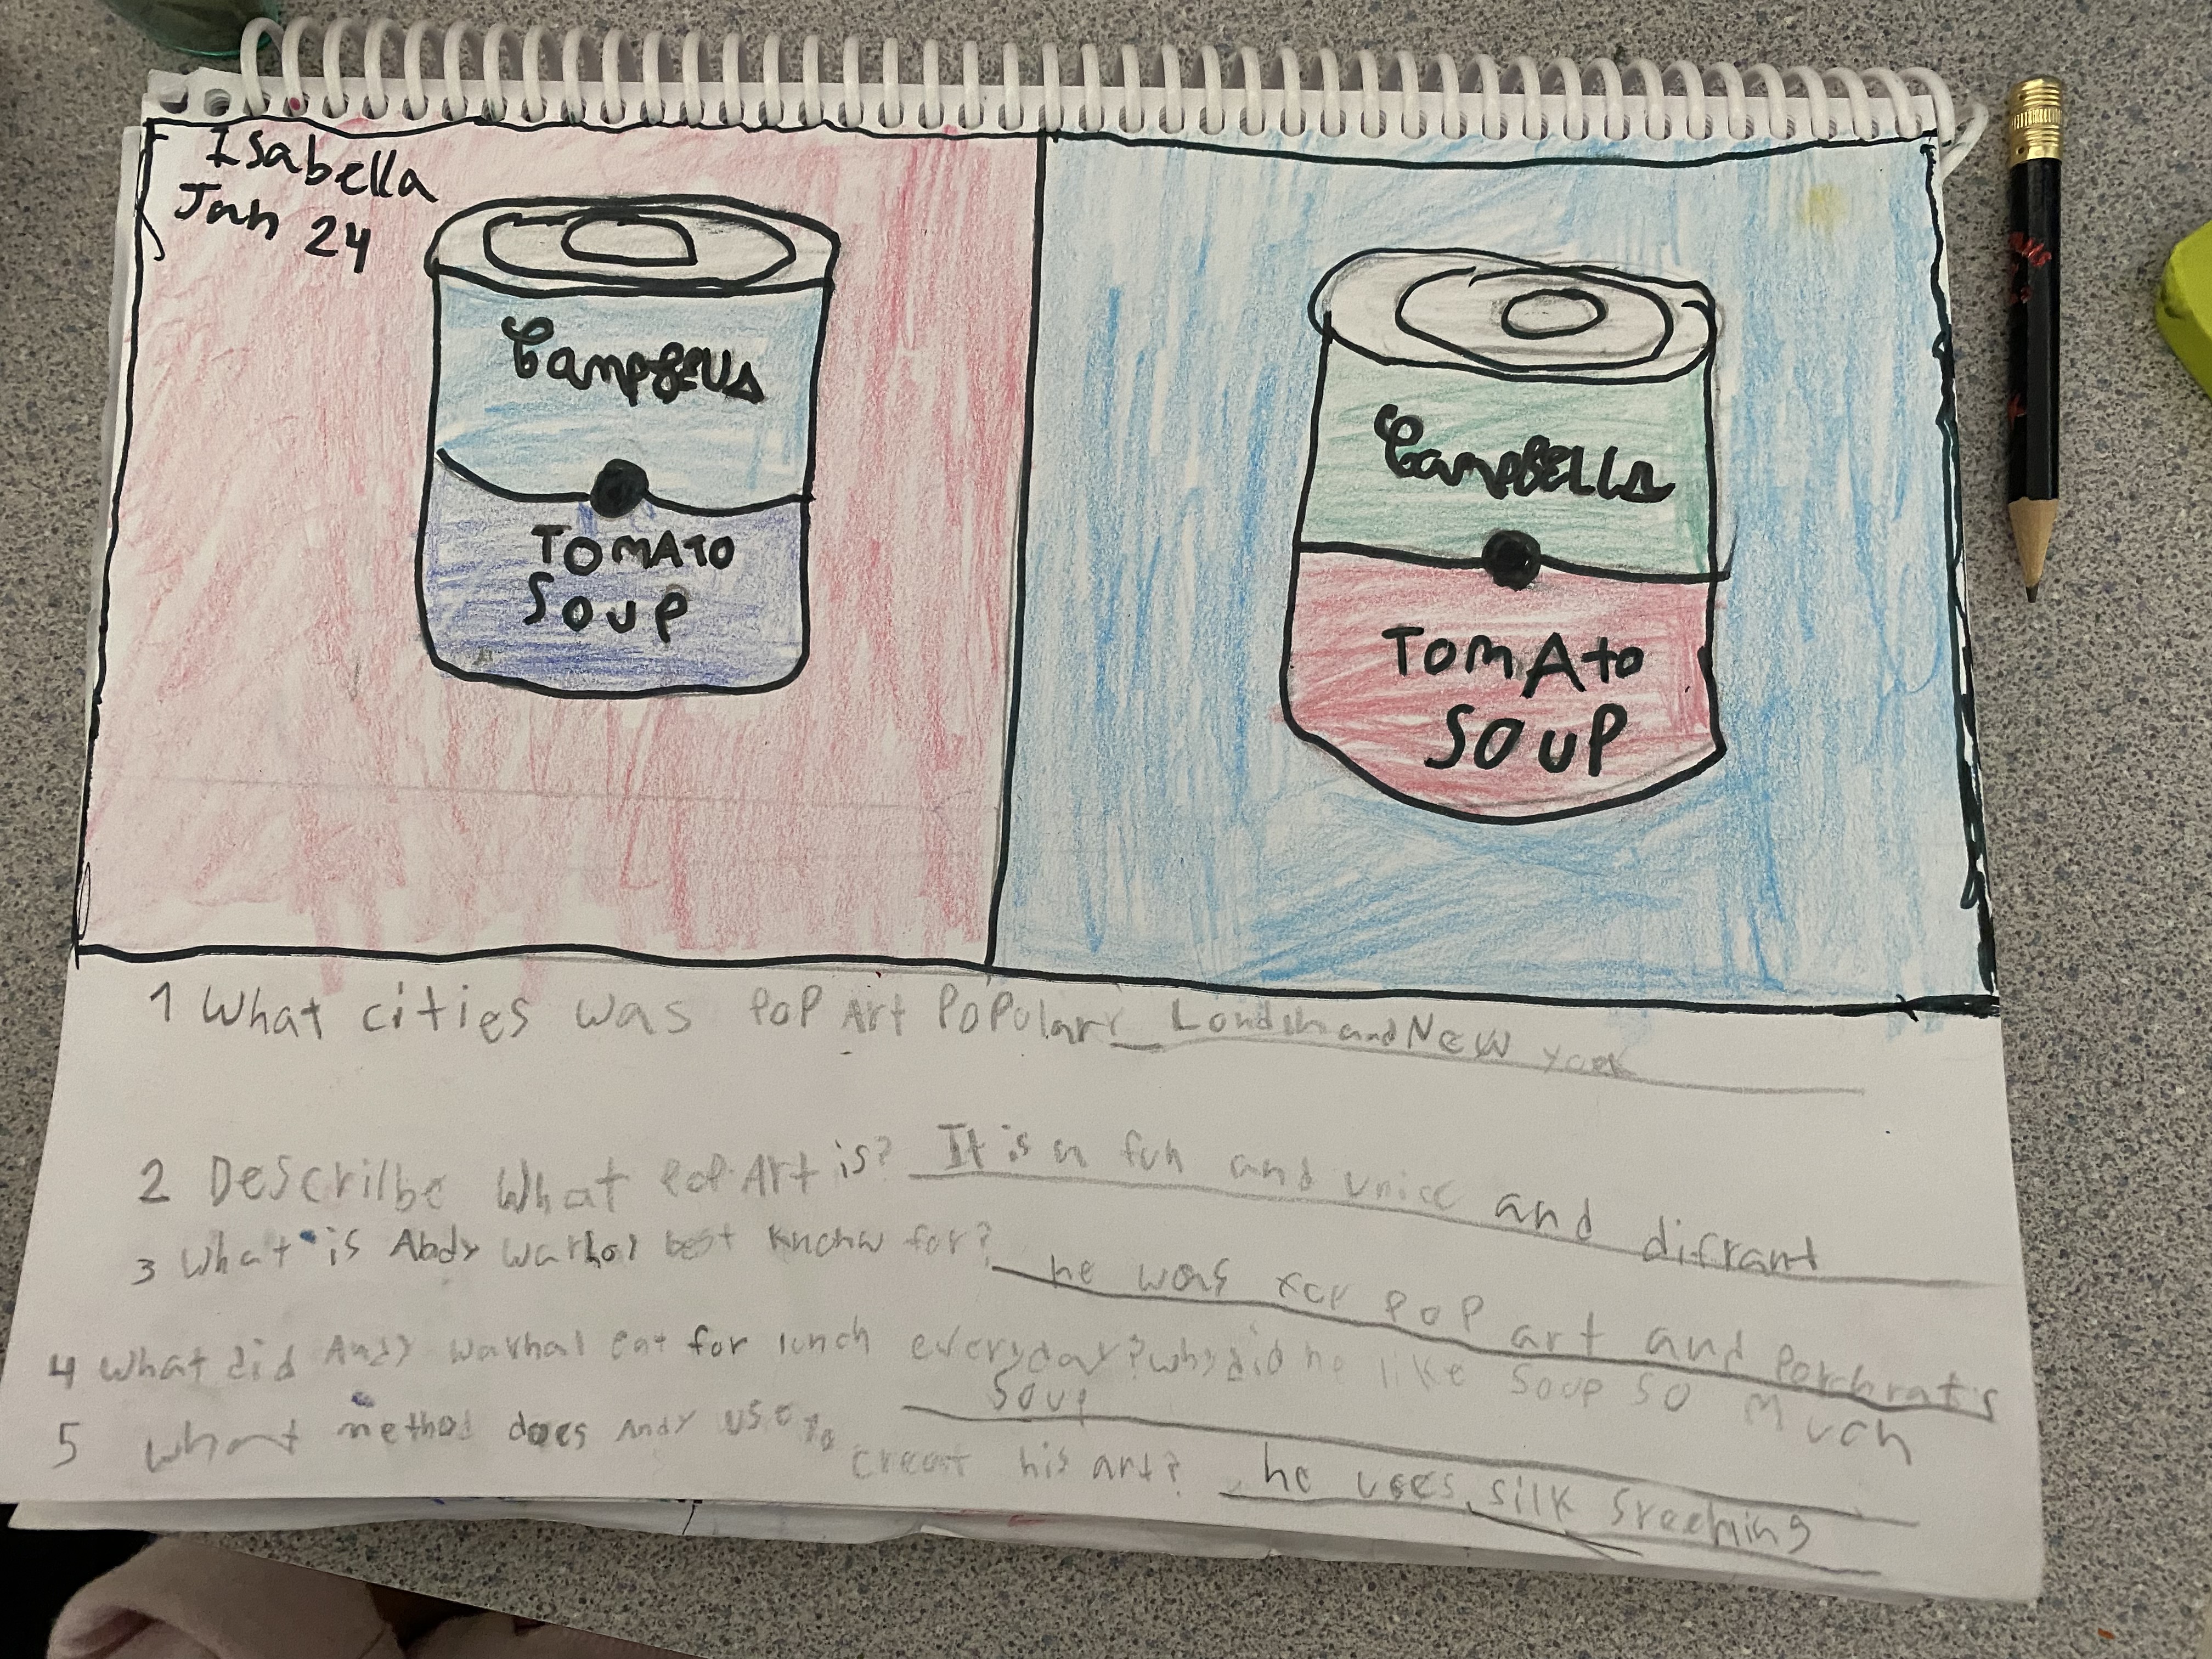 Isabella
Jan 24
Campbells
TOMATO
Soup
CampBElls
TomAto
SOUP
1 What cities was PoP Art PoPular? London and New york
2 Descrilbe What PoP Art is? It is a fun and unice and difrant
3 What is Abdy Warhol best knonw for? he was for PoP art and
4 What did Andy Warhal eat for lunch everyday? why did he like Soup so much
Soup
5 what method does Andy use to creat his art? he uses silk Sreening